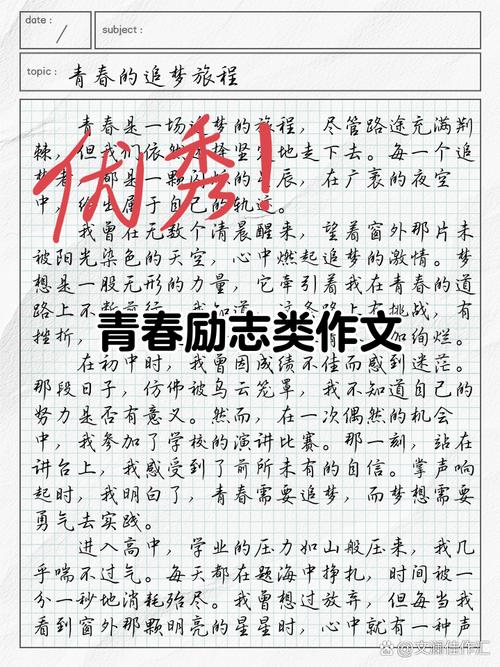 date:
subject:
topic: 青春的追梦旅程
青春是一场追梦的旅程,尽管路途充满荆
棘,但我们依然选择坚定地走下去。每一个追
都是一颗闪烁的星辰,在广袤的夜空
中,给出属于自己的轨迹。
优秀!
我曾在无数个清晨醒来,望着窗外那片未
被阳光染色的天空,心中燃起追梦的激情。梦
想是一股无形的力量,它牵引着我在青春的道
路上不断前行。我知道,这条路上有挑战,有
挫折,加绚烂。
青春励志类作文
在初中时,我曾因成绩不佳而感到迷茫。
那段日子,仿佛被乌云笼罩,我不知道自己的
努力是否有意义。然而,在一次偶然的机会
中,我参加了学校的演讲比赛。那一刻,站在
讲台上,我感受到了前所未有的自信。掌声响
起时,我明白了,青春需要追梦,而梦想需要
勇气去实践。
进入高中,学业的压力如山般压来,我几
乎喘不过气。每天都在题海中挣扎,时间被一
分一秒地消耗殆尽。我曾想过放弃,但每当我
看到窗外那颗明亮的星星时,心中就有一种声
@文澜佳作汇